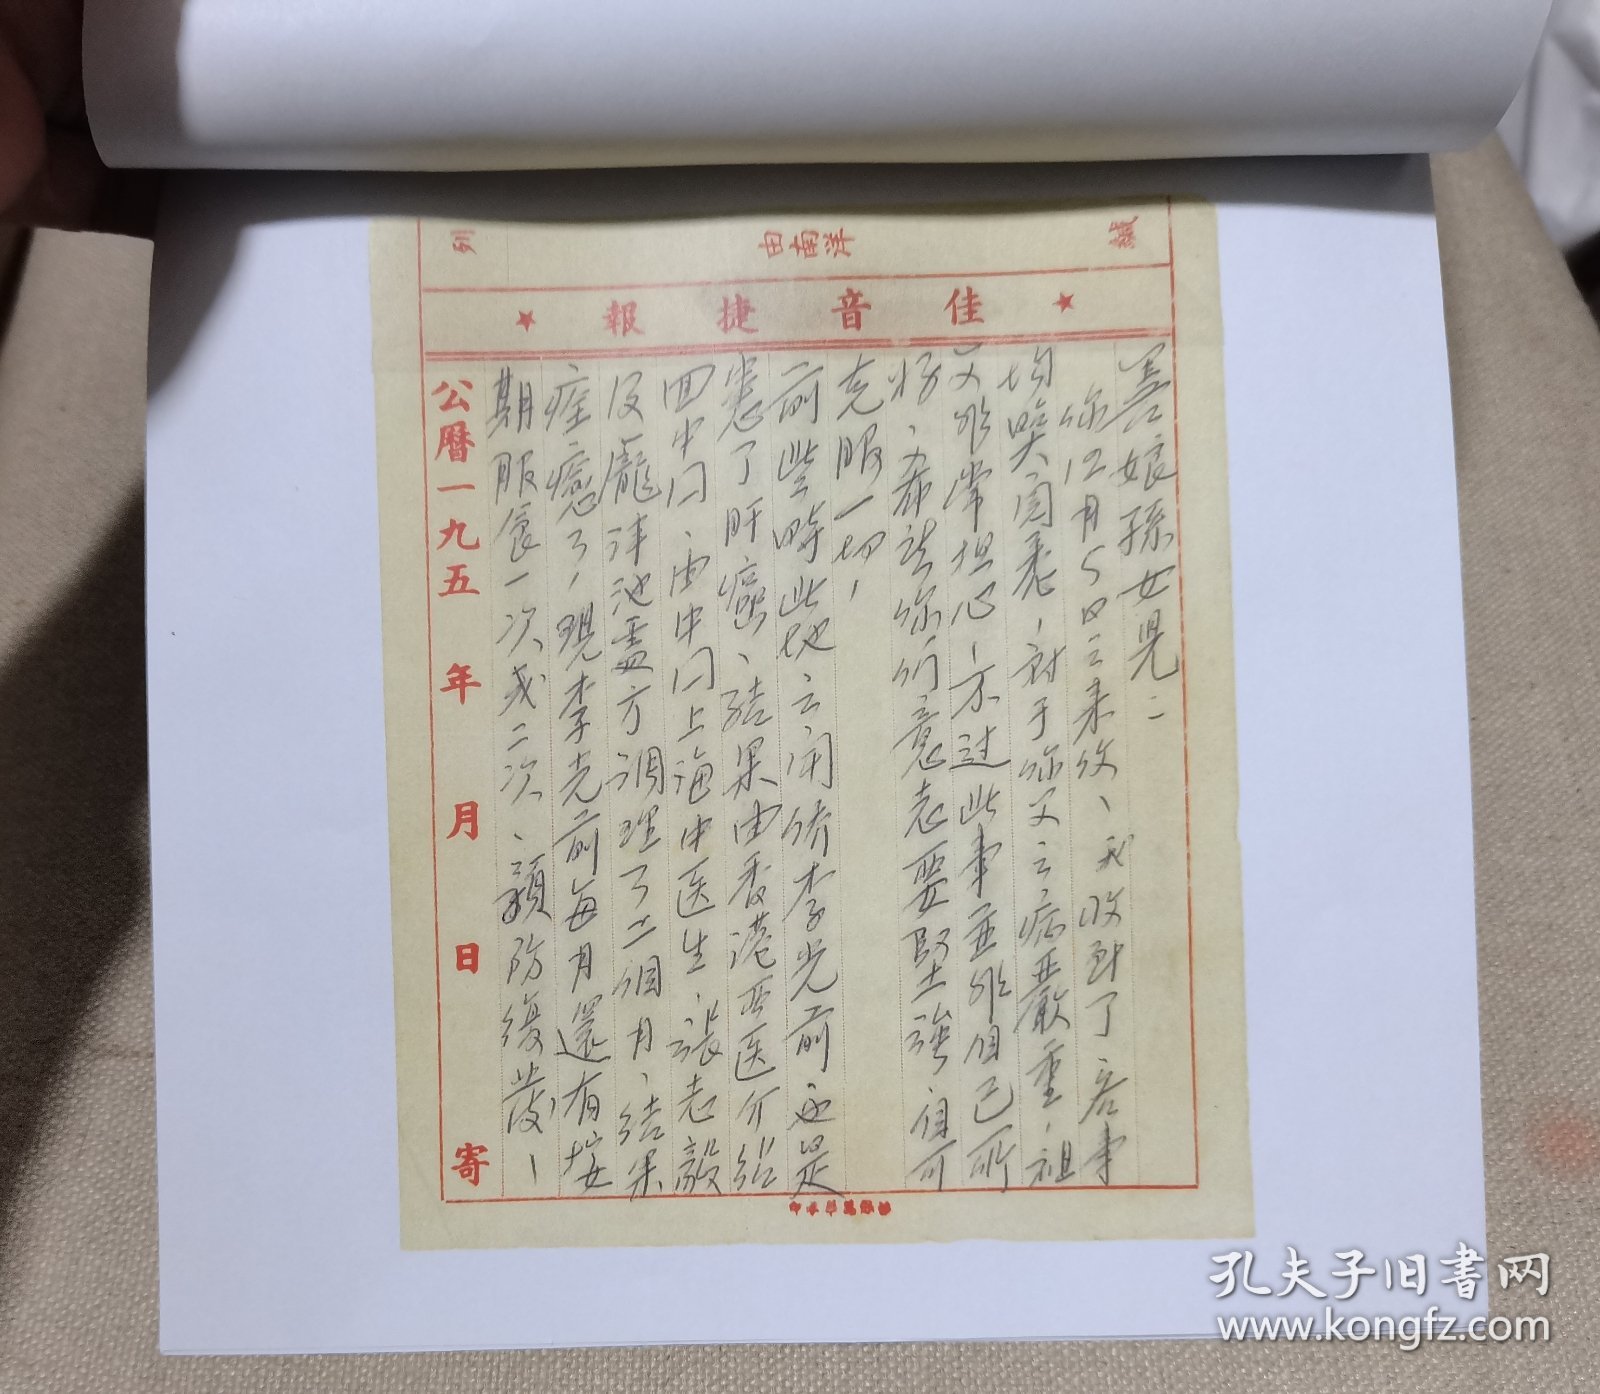 列
由南洋
緘
★ 佳音捷報 ★
善娘孫女兒：
你12月5日之來信、我收到了、容事
均閱悉、對于你父之病嚴重、祖
父非常担心、不過此事並非自己所
好、希望你們意志要堅強、自可
克服一切、
前些時此地之閩侨李光前也是
患了肝癌、結果由香港西医介紹
回中囗、由中囗上海中医生、張志毅
及龐沣池靈方调理了二個月、結果
痊癒了、現李光前每月還有按
期服食一次或二次、預防復發、
公曆一九五 年 月 日 寄
孔夫子旧書网
www.kongfz.com